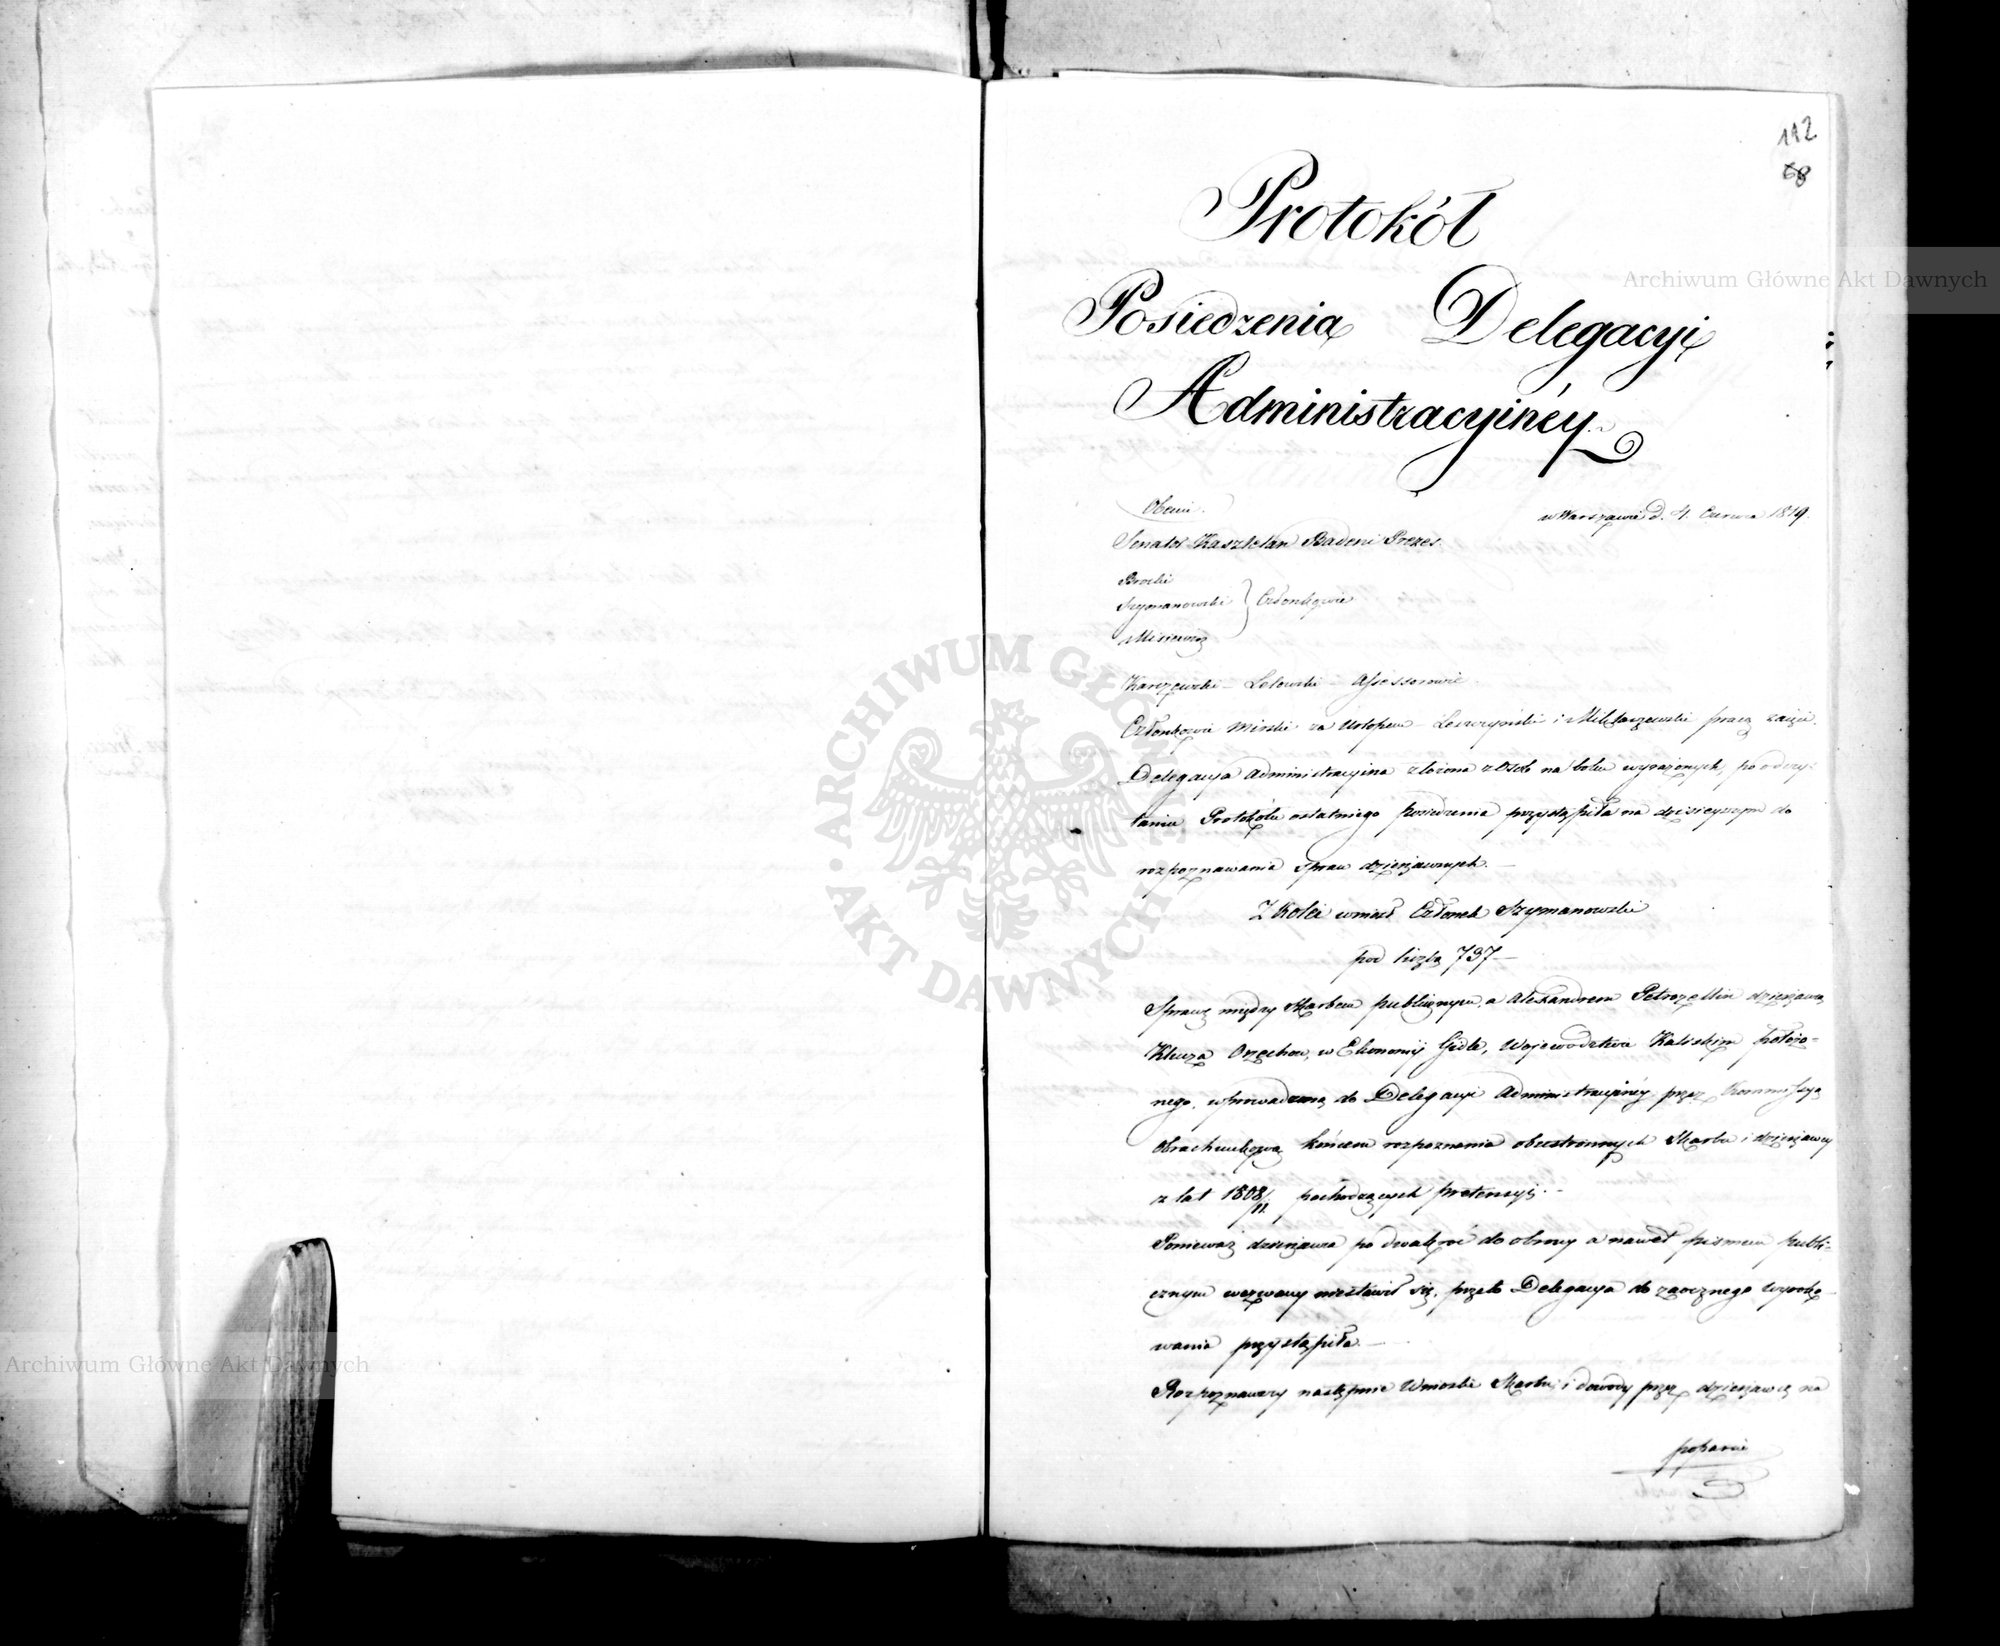 112
68
Protokół
Posiedzenia Delegacyi
Administracyinéy
Obecni.
w Warszawie d. 4. Czerwca 1819.
Senator Kasztelan Badeni Prezes.
Brocki
Szymanowski
Członkowie
Misiewicz
Karczewski – Letowski – Assessorowie.
Członkowie Mirski za Urlopem – Leszczyński i pracą zajęci.
Delegacya Administracyina złożona z Osób na boku wyrażonych, po odczy-
taniu Protokołu ostatniego posiedzenia przystąpiła na dzisieyszym do
rozpoznawania spraw dzierżawnych. —
Z Kolei wniósł Członek Szymanowski
pod liczbą 737 —
Sprawę między Skarbem publicznym, a Alexandrem Petrozellin dzierżawcą
Klucza Orzechow, w Ekonomij Gidle, Wojewodztwie Kaliskim położo-
nego, wprowadzoną do Delegacyi Administracyinéy przez Kommissyą
Obrachunkową końcem rozpoznania obustronnych Skarbu i dzierżawcy
z lat 1808/11. pochodzących pretensyj. –
Ponieważ dzierżawca po dwakroć do obrony a nawet pismem publi-
cznym wezwany niestawił się, przeto Delegacya do zaocznego wyroko-
wania przystąpiła. —
Rozpoznawszy następnie Wnioski Skarbu i dowody przez dzierżawcę na
poparcie
Archiwum Główne Akt Dawnych
ARCHIWUM GŁÓWNE AKT DAWNYCH
Archiwum Główne Akt Dawnych